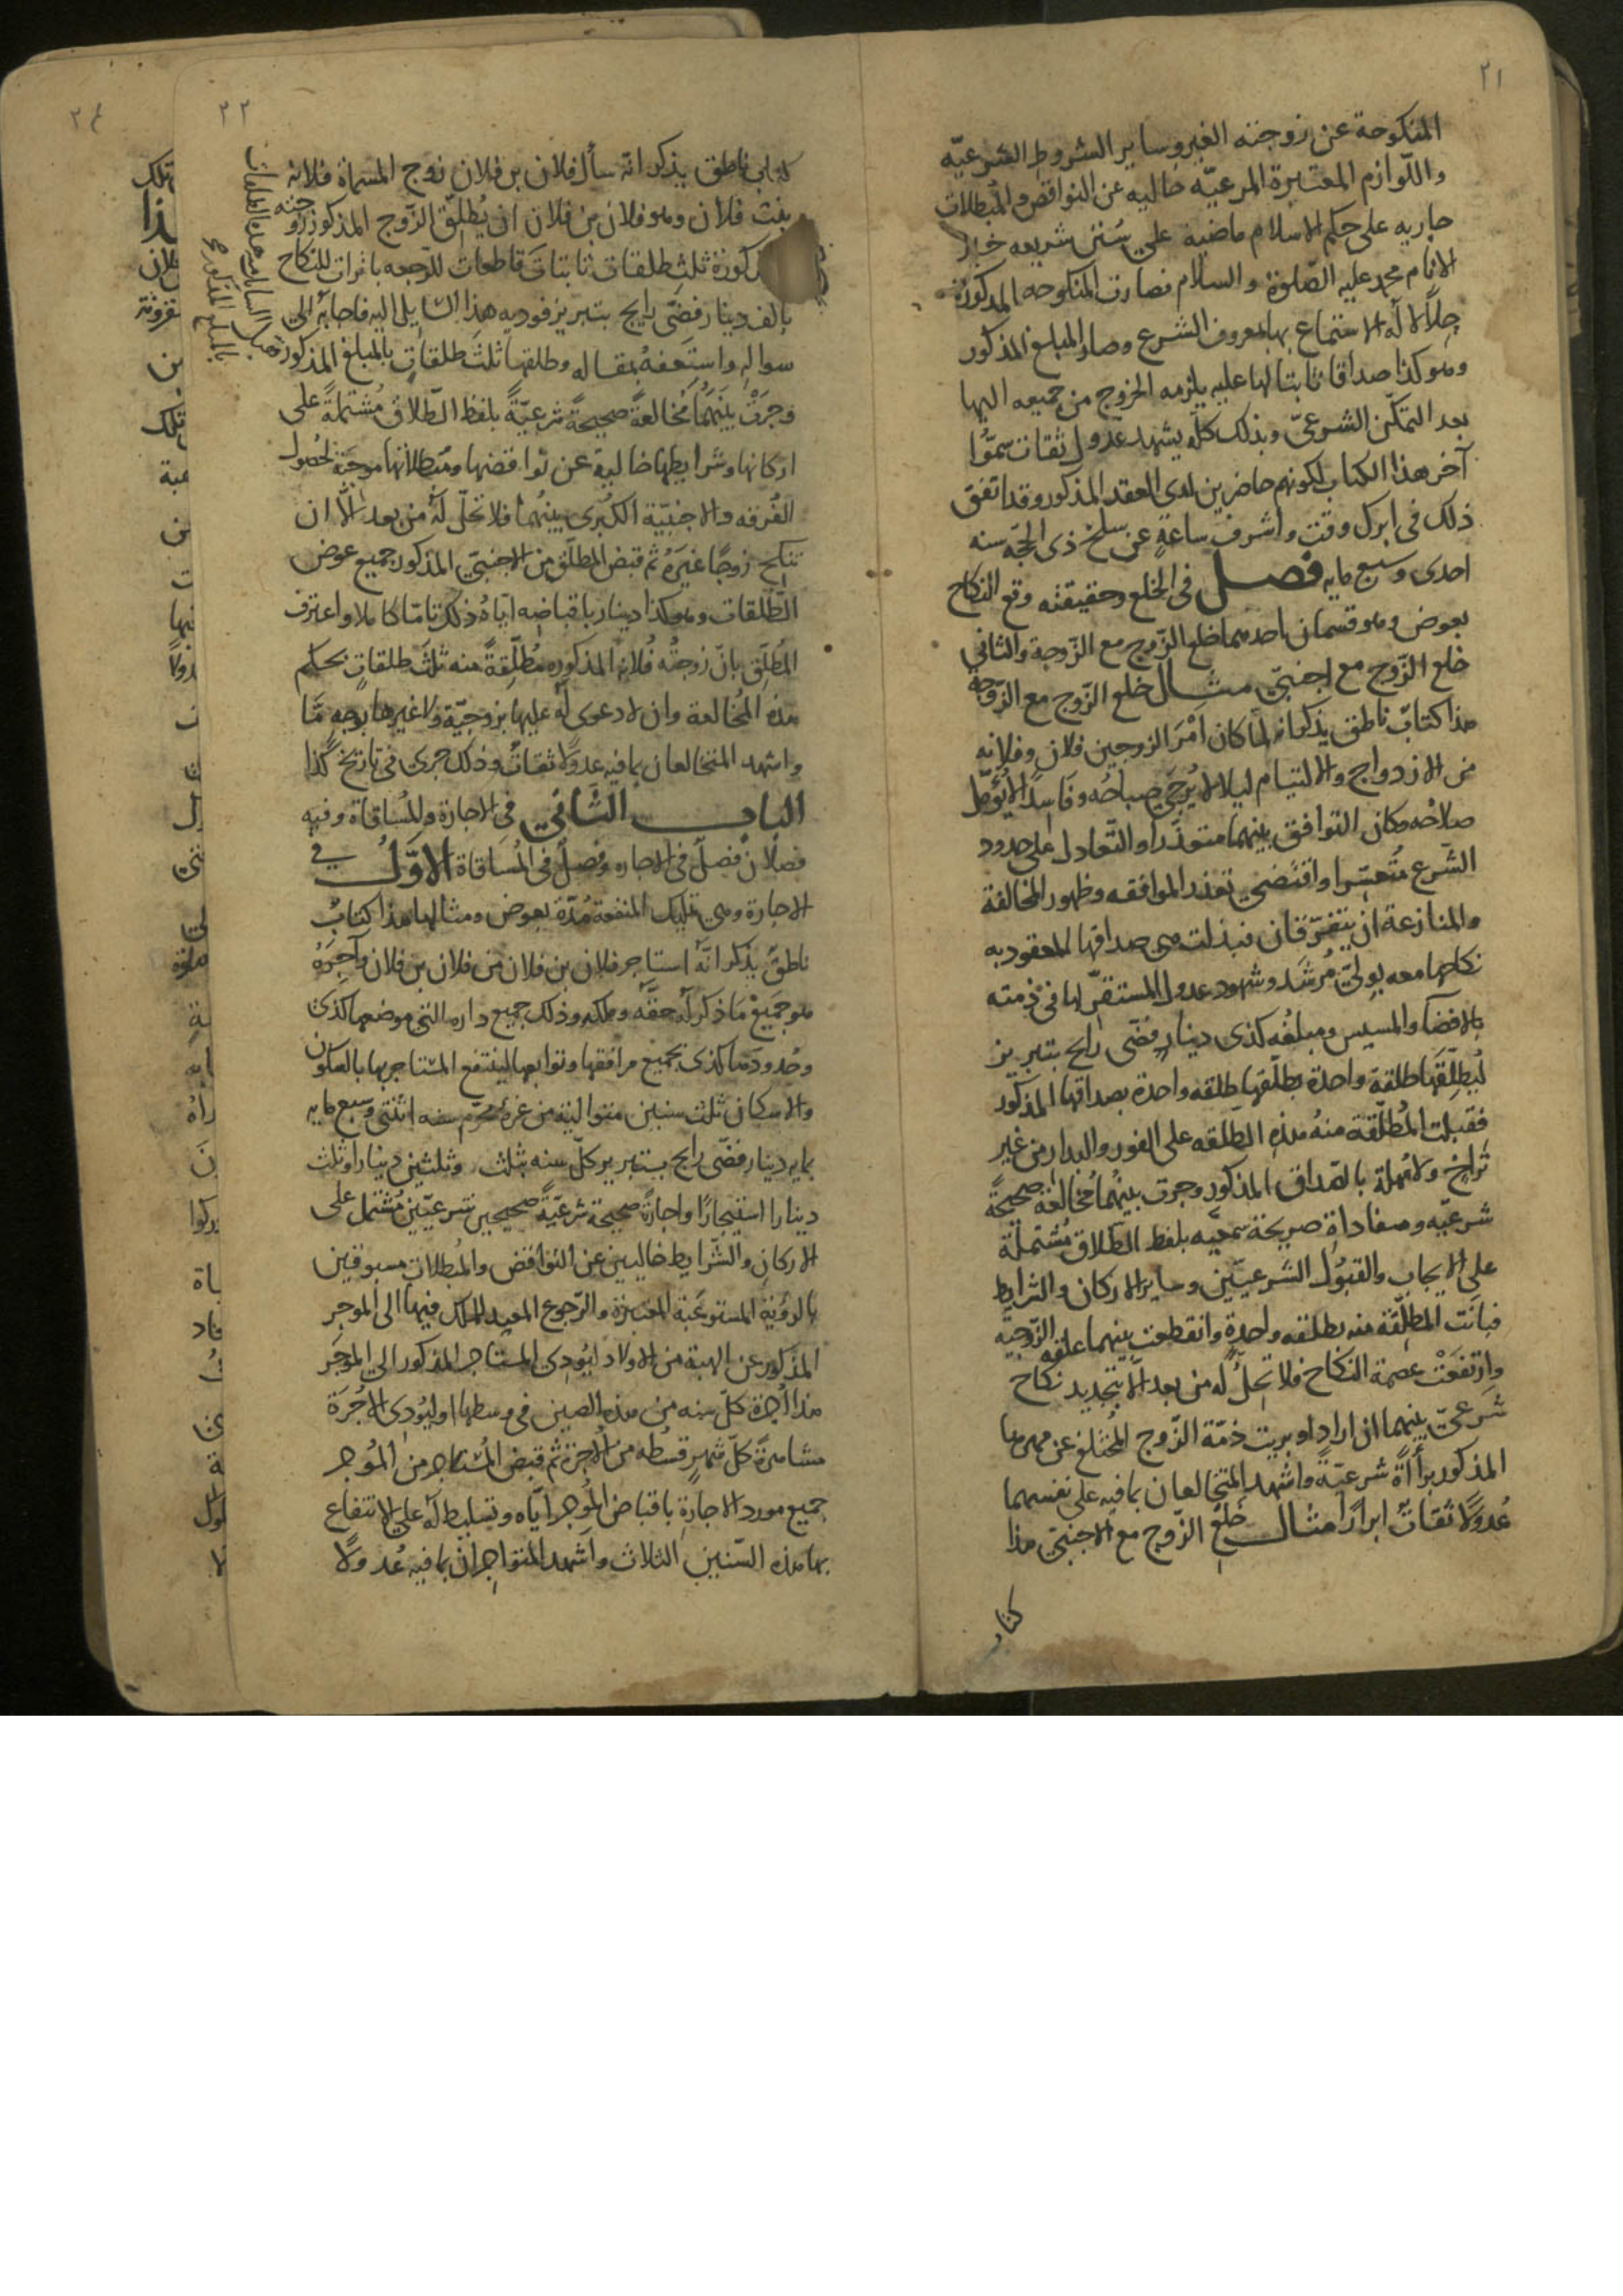 ٢١
المنكوحة عن زوجته الغير وساير الشروط الشرعيّه
واللّوازم المعتبرة المرعيّه خاليه عن النواقض والمُبطلات
جاريه على حكم الاسلام ماضية على سُنَن شريعه خير
الانام محمد عليه الصّلوة والسلام فصارت المنكوحه المذكورة
حِلًا لا له الاستمتاع بها بمعروف الشرع وصار المبلغ المذكور
وهو كذا صداقا ثابتا لها عليه يلزمه الخروج من جميعه اليها
بعد التمكّن الشرعىّ وبذلك كلّه يشهد عدول ثقات سمّوا
آخر هذا الكتاب لكونهم حاضرين لدى العقد المذكور وقد اتفق
ذلك فى ابرك وقت واشرف ساعةٍ عن سلخ ذى الحجّه سنه
احدى وسبع مايه فصل فى الخلع وحقيقته وقع النكاح
بعوض وهو قسمان احدهما خلع الزّوج مع الزّوجة والثانى
خلع الزّوج مع اجنبىّ مثال خلع الزّوج مع الزّوجة
هذا كتابٌ ناطق بذكر انه لمّا كان امْرَ الزوجين فلان وفلانه
من الازدواج والالتيام ليلا لا يُرجى صباحُه وفاسِدًا لا يُؤمّل
صلاحُه وكان التوافق بينهما متعذّرا والتّعادل على حدود
الشّرع مُتعسّرا واقتضى تعذر الموافقه وظهور المخالفة
والمنازعة ان يتفرّقان فبذلت هى صداقها المعقود به
نكاحها معه بولىّ مُرشد وشهود عدول المستقرّ لها فى ذمته
بالافضا والمسيس ومبلغُه كذى دينارٍ فضّى رايح بتبريز
ليُطلّقها طلقة واحدة فطلّقها طلقه واحدة بصداقها المذكور
فقبلت المُطلّقة منهُ هذه الطلقه على الفور والبدار من غير
تراخٍ ولا مُهلة بالصّداق المذكور وجرت بينهُما مُخالعة صحيحةً
شرعيّه ومفاداة صريحة سمحيّه بلفظ الطّلاق مُشتملة
على الايجاب والقبُول الشّرعيّين وساير الاركان والشرايط
فبانَت المطلّقة منه بطلقه واحدةٍ وانقطعت بينهما علقه الزوجيّة
وارتفعَتْ عصمة النكاح فلا تحِلُّ له من بعد الّا بتجديد نكاح
شرعىّ بينهما ان اراداه وبريت ذمّة الزّوج المُختلع عن مهرها
المذكور براَةً شرعيّةً واشهد المتخالعان بما فيه على نفسهما
عُدولًا ثقاتٌ ابرارًا مثال خلع الزّوج مع الاجنبىّ هذا
كتاب
٢٢
كتاب ناطق بذكر انّه سأل فلان بن فلان زوج المسماة فلانه
بنت فلان وهو فلان بن فلان ان يُطلّق الزّوج المذكور زوجته
المذكورة ثلث طلقات ثابتات قاطعات للرّجعه باتّرات للنكاح
بالف دينار فضّى رايج بتبريز فوديه هذا السّايل اليه فاجابه الى
سواله واستعفهُ بمقاله وطلقها ثلث طلقاتٍ بالمبلغ المذكور
وجرَتْ بينَهُما مُخالعةً صحيحةً شرعيّةً بلفظ الطّلاق مُشتملةً على
اركانها وشرايطها خالية عن نواقضها ومُبطلاتها موجبة لحُصول
الفُرقه والاجنبيّة الكُبرى بينهُما فلا تحلّ لهُ من بعد الّا ان
تنكح زوجًا غيَرهُ ثم قبض المطلّق من الاجنبىّ المذكور جميع عوض
الطّلقات وهو كذا دينار باقباضه ايّاهُ ذلك تامّا كاملا واعترف
المُطلِّق بانّ زوجتُه فُلانه المذكوره مُطلّقةً منه ثلث طلقاتٍ بحكم
هذه المُخالعة وان لا دعوى له عليها بزوجيّة ولا غيرها بوجهٍ مّا
واشهد المتخالعان بما فيه عدولًا ثقاتٌ وذلك جرى فى تاريخ كذا
الباب الثانى فى الاجارة والمُساقاة وفيه
فصلان فصلٌ فى الاجاره وفصلٌ فى المُساقاة الاوّل فى
الاجارة وهى تمليك المنفعة مُدّة بعوض ومثالها هذا كتابٌ
ناطقٌ بذكر انّه استاجر فلان بن فلان من فلان بن فلان وآجرَهُ
هو جميعَ ما ذكر له حقّه وملكه وذلك جميع داره التى موضعها كذى
وحُدودها كذى بجميع مرافقها وتوابعها لينتفع المستاجر بها بالسكون
والاسكان ثلث سنين متوالية من غرة محرّم سنه اثنتى وسبع مايه
بمايه دينار فضّى رايح بتبريز كلّ سنه بثلث وثلثين دينارا وثلث
دينارا استيجارًا واجارةً صحيحة شرعيّةً صحيحين شرعيّين مُشتمل على
الاركان والشّرايط خاليين عن النواقض والمُبطلات مسبوقين
بالرؤية المستوعبة المعتبرة والرّجوع المعيد للملك فيها الى الموجر
المذكور عن الهبة من الاولاد ليُودى المستاجر المذكور الى الموجَر
هذا اُجرة كلّ سنه من هذه السنين فى وسطها او ليُودى الاُجرَة
مشاهرةً كلّ شهرٍ قسطه من الاُجرة ثم قبض المُستاجر من المُوجر
جميع مورد الاجارةِ باقباض المُوجر ايّاه وتسليط له على الانتفاع
بها هذه السّنين الثلاث واشهد المتواجران بما فيه عُدولًا
بالمبلغ المذكور
٢٤